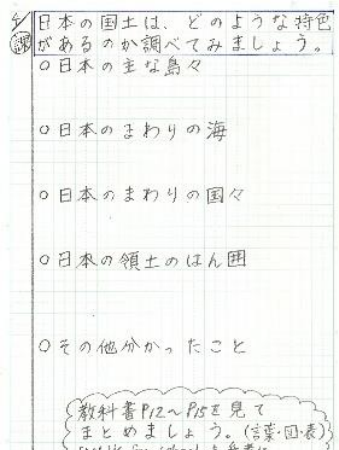 4/ 日本の国土は、どのような特色
課 があるのか調べてみましょう。
○日本の主な島々
○日本のまわりの海
○日本のまわりの国々
○日本の領土のはん囲
○その他分かったこと
教科書P12〜P15を見て
まとめましょう。(言葉・図・表)